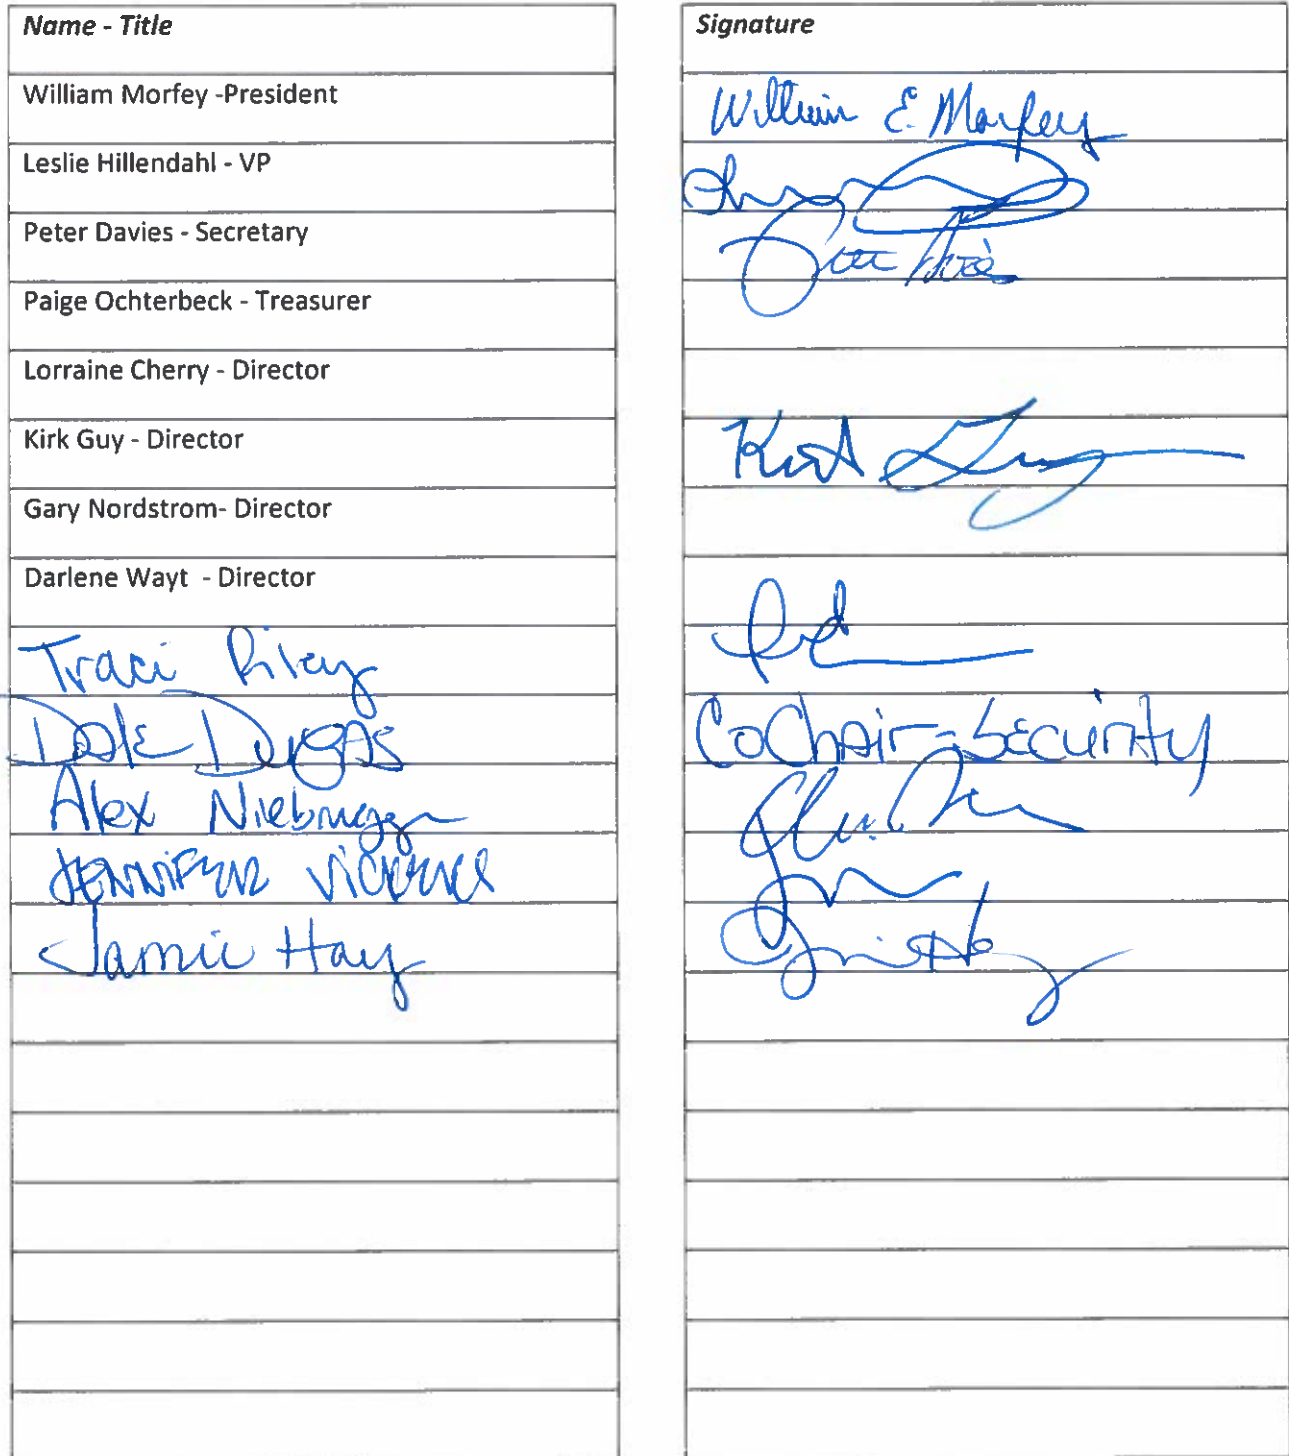 Name - Title
Signature
William Morfey -President
William E. Morfey
Leslie Hillendahl - VP
Peter Davies - Secretary
Paige Ochterbeck - Treasurer
Lorraine Cherry - Director
Kirk Guy - Director
Kirk Guy
Gary Nordstrom- Director
Darlene Wayt - Director
Traci Riley
Dale Dugas
CoChair-Security
Alex Niebrugge
JENNIFER
Jamie Hay